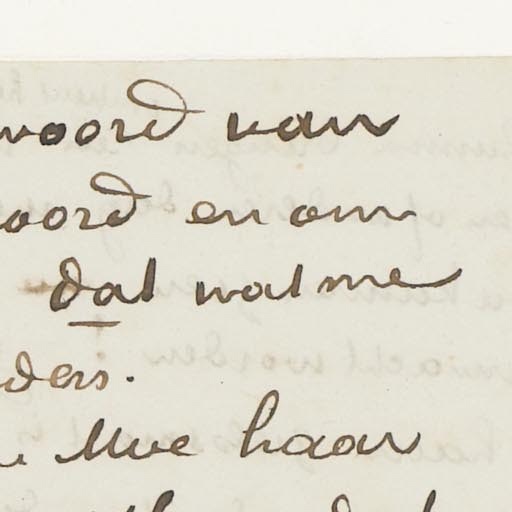 woord van
oord en om
dat wat me
ders.
Uwe haar